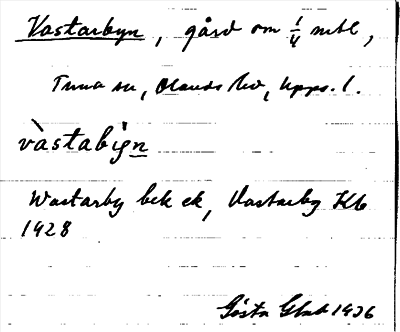 Vastarbyn, gård om 1/4 mtl,
Tuna sn, Olands hd, Upps. l.
vàstabi̇̀n
Wastarby bek ek, Vastarby Kb
1928
Gösta Glad 1936